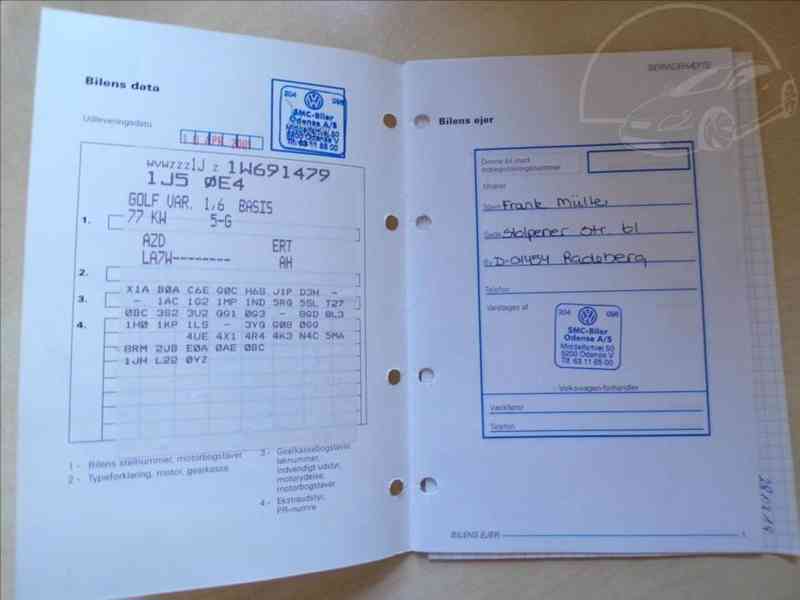 Bilens data
204 098
SMC-Biler
Odense A/S
Middelfartvej 50
5200 Odense V
Tlf. 63 11 65 00
Udleveringsdato
APR. 200
WVWZZZ1J Z 1W691479
1J5 0E4
GOLF VAR. 1,6 BASIS
77 KW 5-G
1.
AZD ERT
LA7W-------- AH
2.
X1A B0A C6E G0C H6B J1P D3H -
3. - 1AC 1G2 1MP 1ND 5RQ 5SL T27
08C 3S2 3U2 GG1 0G3 - 8GD 8L3
4. 1H0 1KP 1LS - 3YG G0B 0GG
4UE 4X1 4R4 4K3 N4C 5MA
8RM 2JB E0A 0AE 0BC
1JH L22 0YZ
1 - Bilens stelnummer, motorbogstaver
2 - Typeforklaring, motor, gearkasse
3 - Gearkassebogstaver,
laknummer,
indvendigt udstyr,
motorydelse,
motorbogstaver
4 - Ekstraudstyr,
PR-numre
SERVICEHÆFTE
Bilens ejer
Denne bil med
indregistreringsnummer
tilhører
Navn Frank Müller
Gade Stolpener Str. 61
By D-01454 Radeberg
Telefon
Varetages af
204 098
SMC-Biler
Odense A/S
Middelfartvej 50
5200 Odense V
Tlf. 63 11 65 00
Volkswagen-forhandler
Værkfører
Telefon
BILENS EJER 1